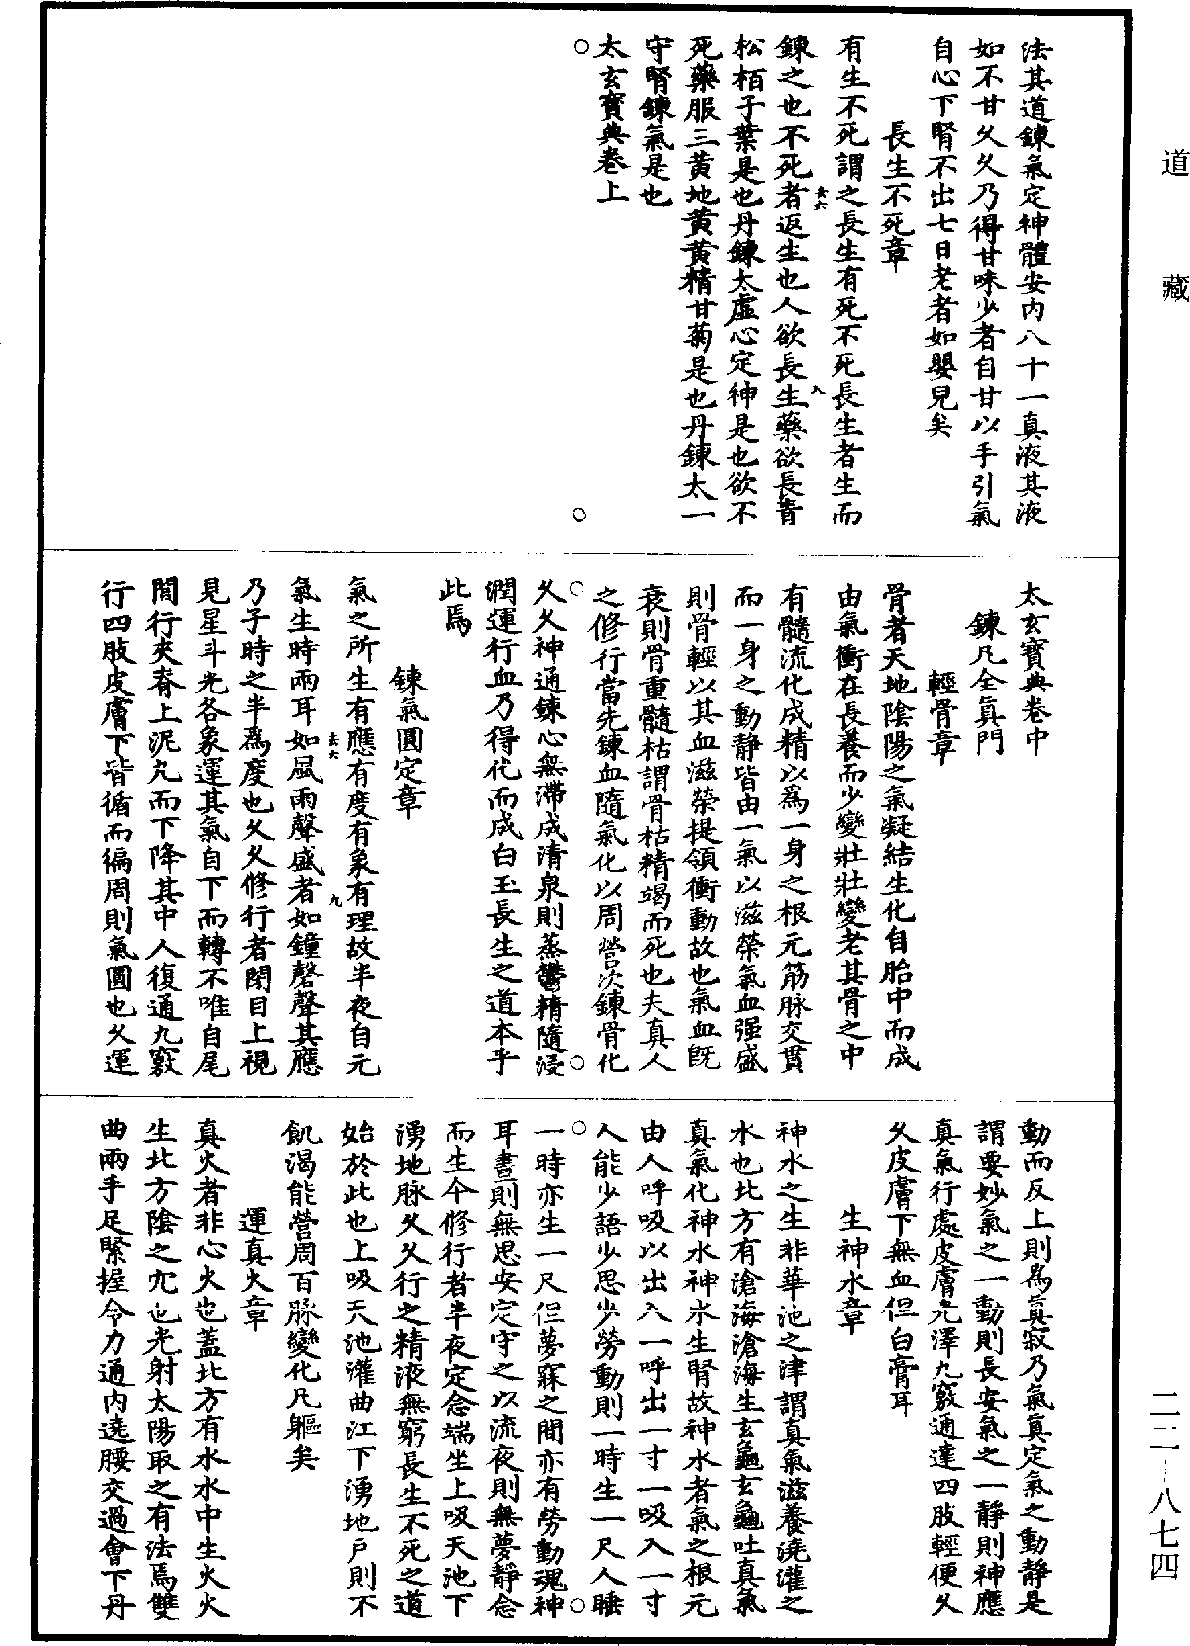 道藏
法其道鍊氣定神體安內八十一真液其液
如不甘久久乃得甘味少者自甘以手引氣
自心下腎不出七日老者如嬰兒矣
長生不死章
有生不死謂之長生有死不死長生者生而
鍊之也不死者返生也人欲長生藥欲長青
松栢子葉是也丹鍊太虛心定神是也欲不
死藥服三黃地黃黃精甘菊是也丹鍊太一
守腎鍊氣是也
太玄寶典卷上
太玄寶典卷中
鍊凡全真門
輕骨章
骨者天地陰陽之氣凝結生化自胎中而成
由氣衝在長養而少變壯壯變老其骨之中
有髓流化成精以為一身之根元筋脉交貫
而一身之動靜皆由一氣以滋榮氣血强盛
則骨輕以其血滋榮提領衝動故也氣血旣
衰則骨重髓枯謂骨枯精竭而死也夫真人
之修行當先鍊血隨氣化以周營次鍊骨化
久久神通鍊心無滯成清泉則蒸鬱精隨浸
潤運行血乃得代而成白玉長生之道本乎
此焉
鍊氣圓定章
氣之所生有應有度有象有理故半夜自元
氣生時兩耳如風雨聲盛者如鐘磬聲其應
乃子時之半為度也久久修行者閉目上視
見星斗光各象運其氣自下而轉不唯自尾
閭行夾脊上泥丸而下降其中人復通九竅
行四肢皮膚下皆循而徧周則氣圓也久運
動而反上則為真寂乃氣真定氣之動靜是
謂要妙氣之一動則長安氣之一靜則神應
真氣行處皮膚光澤九竅通達四肢輕便久
久皮膚下無血但白膏耳
生神水章
神水之生非華池之津謂真氣滋養澆灌之
水也北方有滄海滄海生玄龜玄龜吐真氣
真氣化神水神水生腎故神水者氣之根元
由人呼吸以出入一呼出一寸一吸入一寸
人能少語少思少勞動則一時生一尺人睡
一時亦生一尺但夢寐之間亦有勞動魂神
耳晝則無思安定守之以流夜則無夢靜念
而生今修行者半夜定念端坐上吸天池下
湧地脉久久行之精液無窮長生不死之道
始於此也上吸天池灌曲江下湧地戶則不
飢渴能營周百脉變化凡軀矣
運真火章
真火者非心火也蓋北方有水水中生火火
生北方陰之宂也光射太陽取之有法焉雙
曲兩手足緊握令力通內遶腰交過會下丹
去六
九
去六
九
二二—八七四